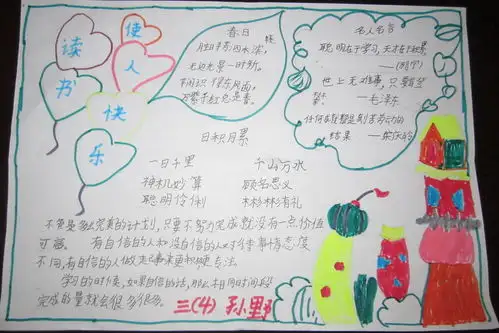 读 使
书 人
快
乐
春日
胜日寻芳泗水滨,
无边光景一时新。
等闲识得东风面,
万紫千红总是春。
名人名言
聪明在于学习,天才在于积累
世上无难事,只要
—毛泽东
任何成就都是刻苦劳动的
结果
日积月累
一日千里 千山万水
神机妙算 顾名思义
聪明伶俐 彬彬有礼
不管是多么完美的计划,只要不努力完成就没有一点价值
可言 有自信的人和没自信的人对待事情态度
不同,有自信的人做起事来更加
学习的时候,如果自信的话,那么相同时间段
完成的量就会很多很多。
三(4) 孙野